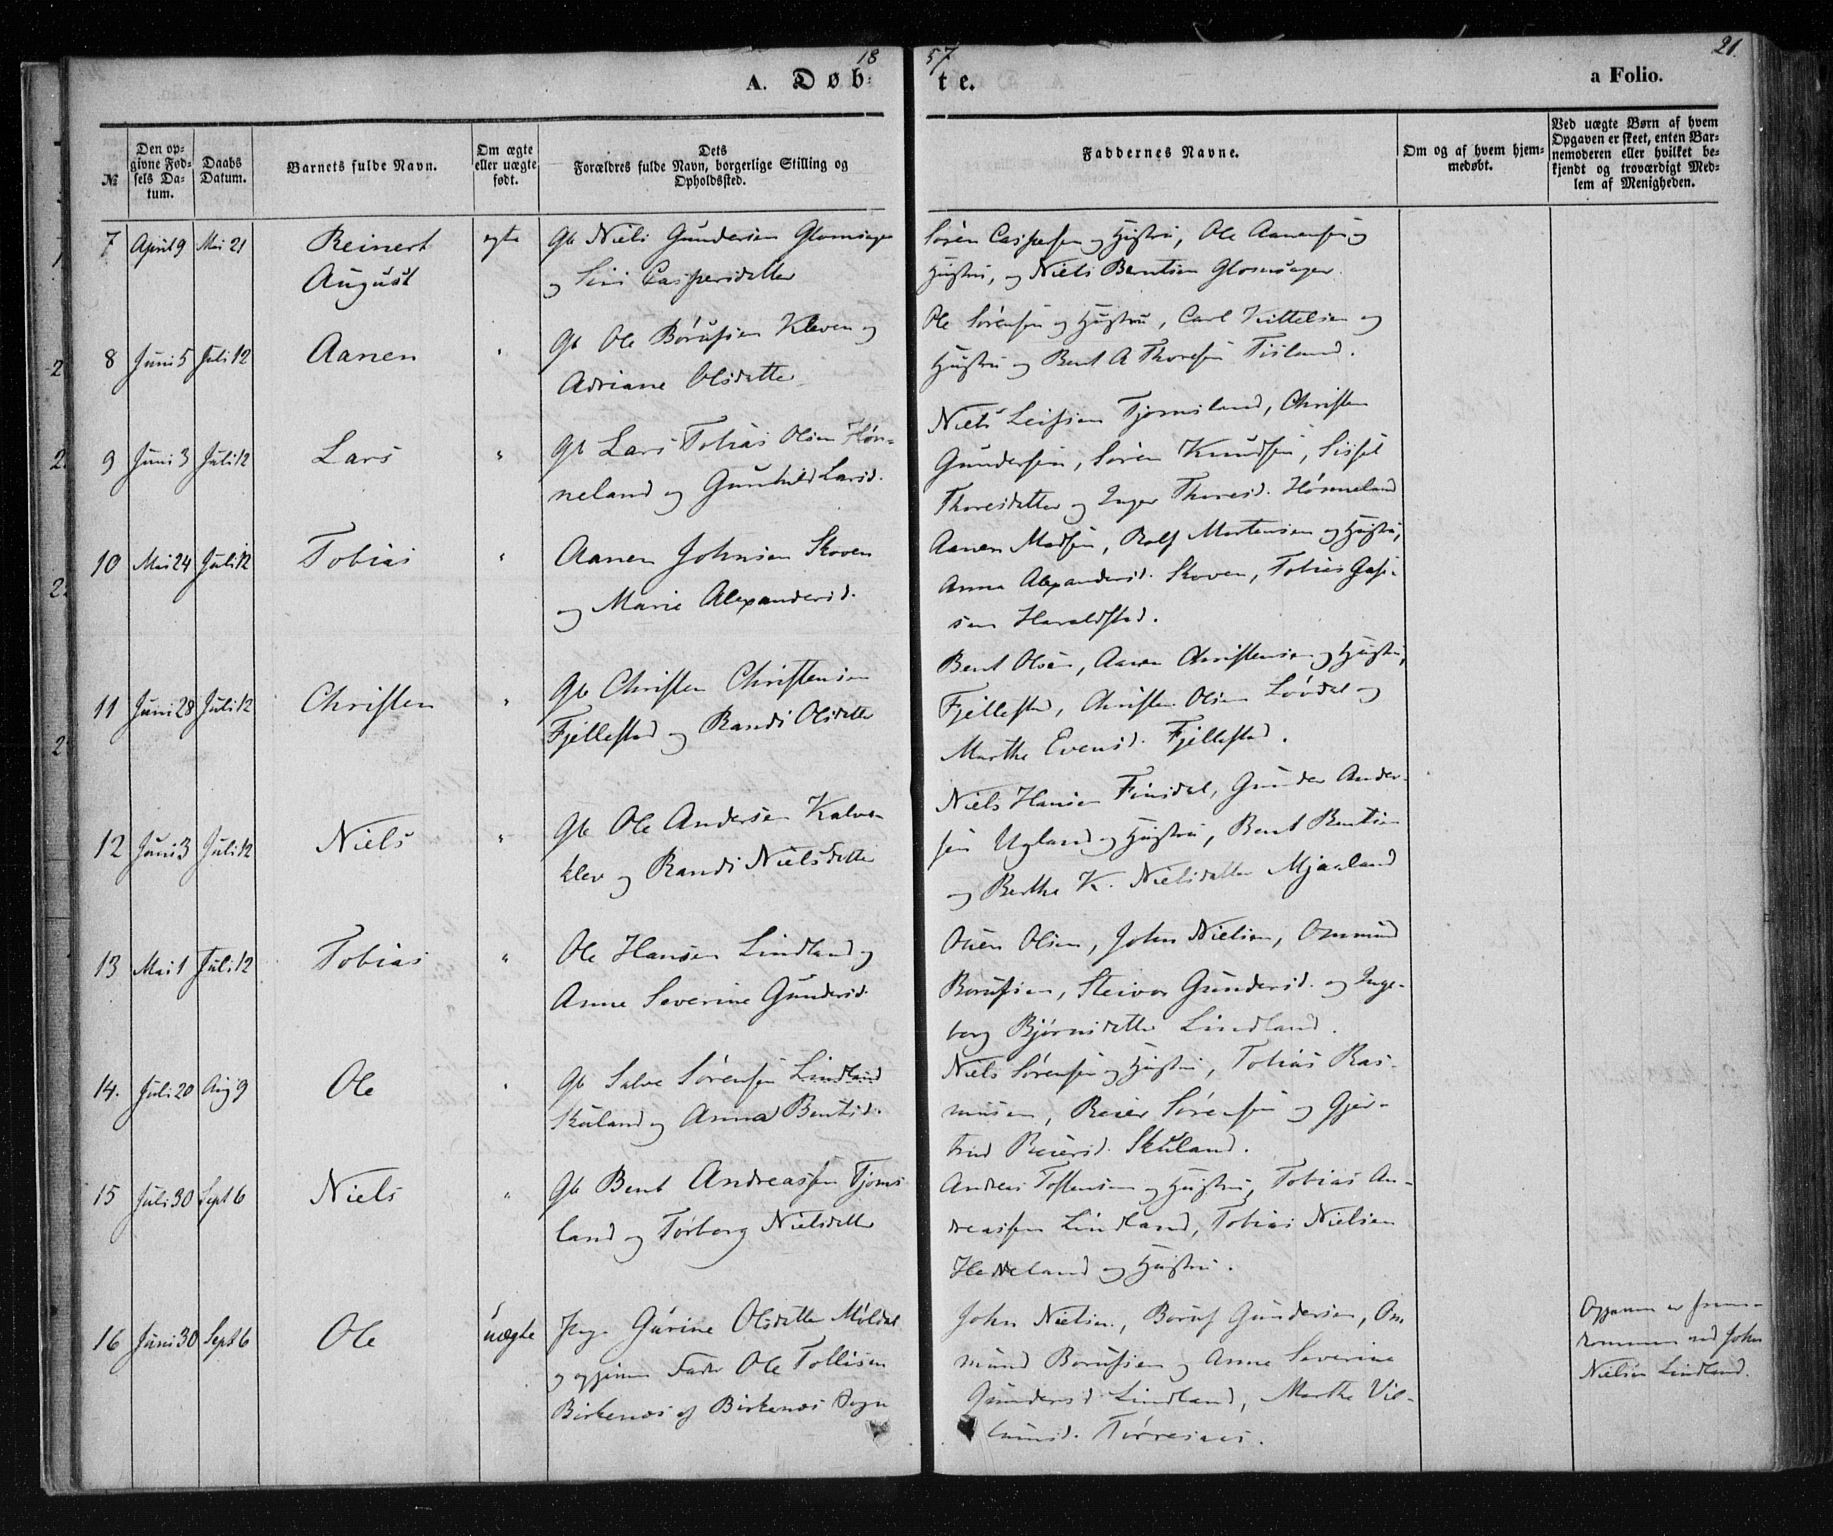 18 57 21.
A. Døb: te. a Folio.
№ Den opgivne Fødsels Datum. Daabs Datum. Barnets fulde Navn. Om ægte eller uægte født. Dets Forældres fulde Navn, borgerlige Stilling og Opholdssted. Faddernes Navne. Om og af hvem hjemmedøbt. Ved uægte Børn af hvem Opgaven er skeet, enten Barnemoderen eller hvilket bekjendt og troværdigt Medlem af Menigheden.
7 April 9 Mai 21 Reinert ægte Gb Niels Gundersen Søren Caspersen og Hustru, Ole Aanensen og
August og Siri Caspersdatter Hustru, og Niels Berntsen
8 Juni 5 Juli 12 Aanen " Gb Ole Børufsen Kleven og Ole Sørensen og Hustru, Carl Kittelsen og
Adriane Olsdatter Hustru og Bent A Thoresen Tisland.
9 Juni 3 Juli 12 Lars " Gb Lars Tobias Olsen Høn- Niels Leifsen Tjomsland, Christen
neland og Gunhild Larsd. Gundersen, Søren Knudsen, Sissel
Thoresdatter og Inger Thoresd. Hønneland
10 Mai 24 Juli 12 Tobias " Aanen Johnsen Skoven Aanen Madsen, Rolf Mortensen og Hustru,
og Marie Alexandersd. Anna Alexandersd. Skoven, Tobias
sen Haraldstad.
11 Juni 28 Juli 12 Christen " Gb Christen Christensen Bent Olsen, Aanen Christensen og Hustru,
Fjellestad og Randi Olsdatter Fjellestad, Christen Olsen Løvdal og
Marthe Evensd. Fjellestad.
12 Juni 3 Juli 12 Niels " Gb Ole Andersen Kalve- Niels Hansen Finsdal, Gunder Ander-
klev og Randi Nielsdatter sen Ugland og Hustru, Bent Bentsen
og Berthe K. Nielsdatter Mjaaland
13 Mai 1 Juli 12 Tobias " Ole Hansen Lindland og Olsen, John Nielsen, Ommund
Anne Severine Gundersd. Børufsen, Steivor Gundersd. og Inge-
borg Bjørnsdatter Lindland.
14. Juli 20 Aug 9 Ole " Gb Salve Sørensen Lindland Niels Sørensen og Hustru, Tobias Ras-
Skuland og Anna Bentsd. musen, Reier Sørensen og Gjer-
trud Reiersd. Skuland.
15 Juli 30 Sept 6 Niels " Gb Bent Andreassen Tjoms- Andreas Tostensen og Hustru, Tobias An-
land og Torborg Nielsdatter dreassen Lindland, Tobias Nielsen
Heddeland og Hustru.
16 Juni 30 Sept 6 Ole uægte Pige Gurine Olsdatter Møldal John Nielsen, Børuf Gundersen, Om Opgaven er frem-
og opgiven Fader Ole Tollisen mund Børufsen og Anne Severine kommen ved John
Birkenæs af Birkenæs Sogn Gundersd. Lindland, Marthe Vil- Nielsen Lindland.
lumsd.